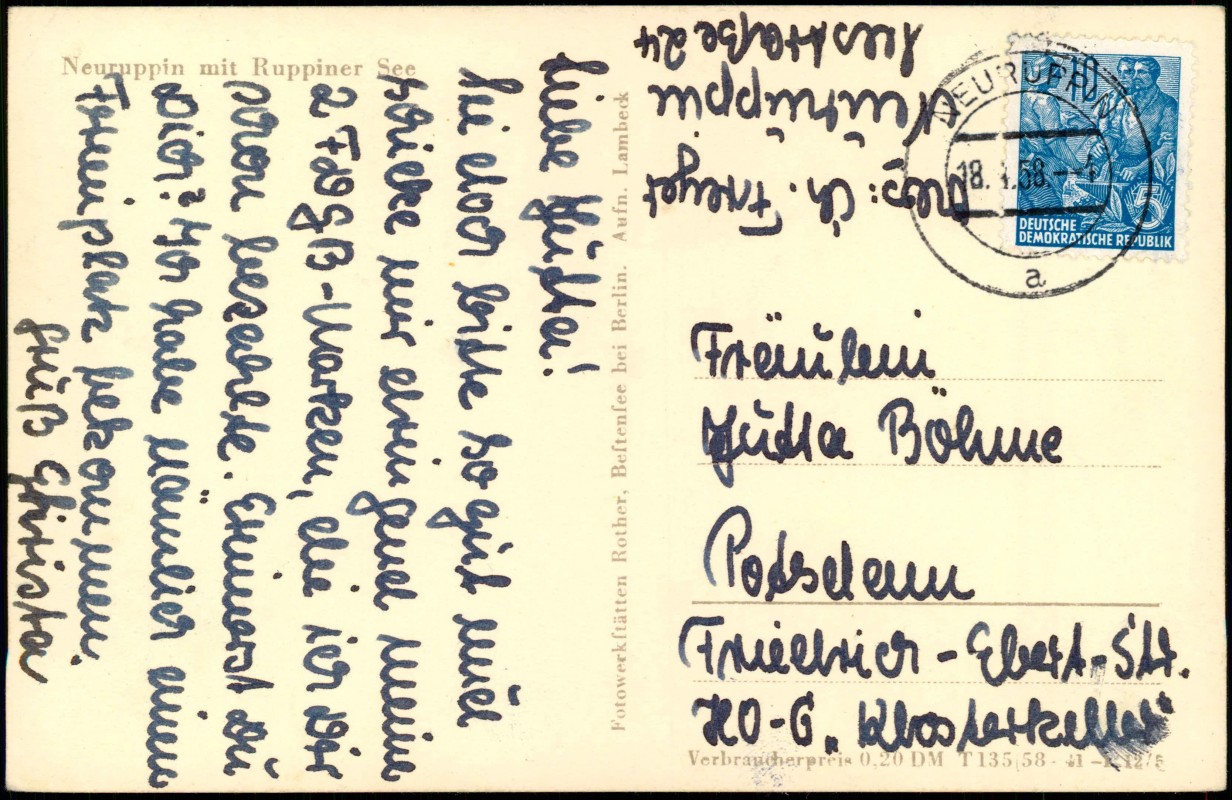 Neuruppin mit Ruppiner See
Liebe Jutta!
Sei doch bitte so gut und
schicke mir dringend meine
2 FDGB-Marken, die ich Dir
schon bezahlte. Erinnerst Du
Dich? Ich habe nämlich einen
Ferienplatz bekommen.
Gruß Christa
Fotowerkstätten Rother, Bestensee bei Berlin. Aufn. Lambeck
Abs: Ch. Freyer
Neuruppin
Seestraße 24
NEURUPPIN
18. 58.
a
10
5
DEUTSCHE
DEMOKRATISCHE REPUBLIK
Fräulein
Jutta Böhme
Potsdam
Friedrich-Ebert-Str.
HO-G „Klosterkeller"
Verbraucherpreis 0,20 DM T 135/58 - 41